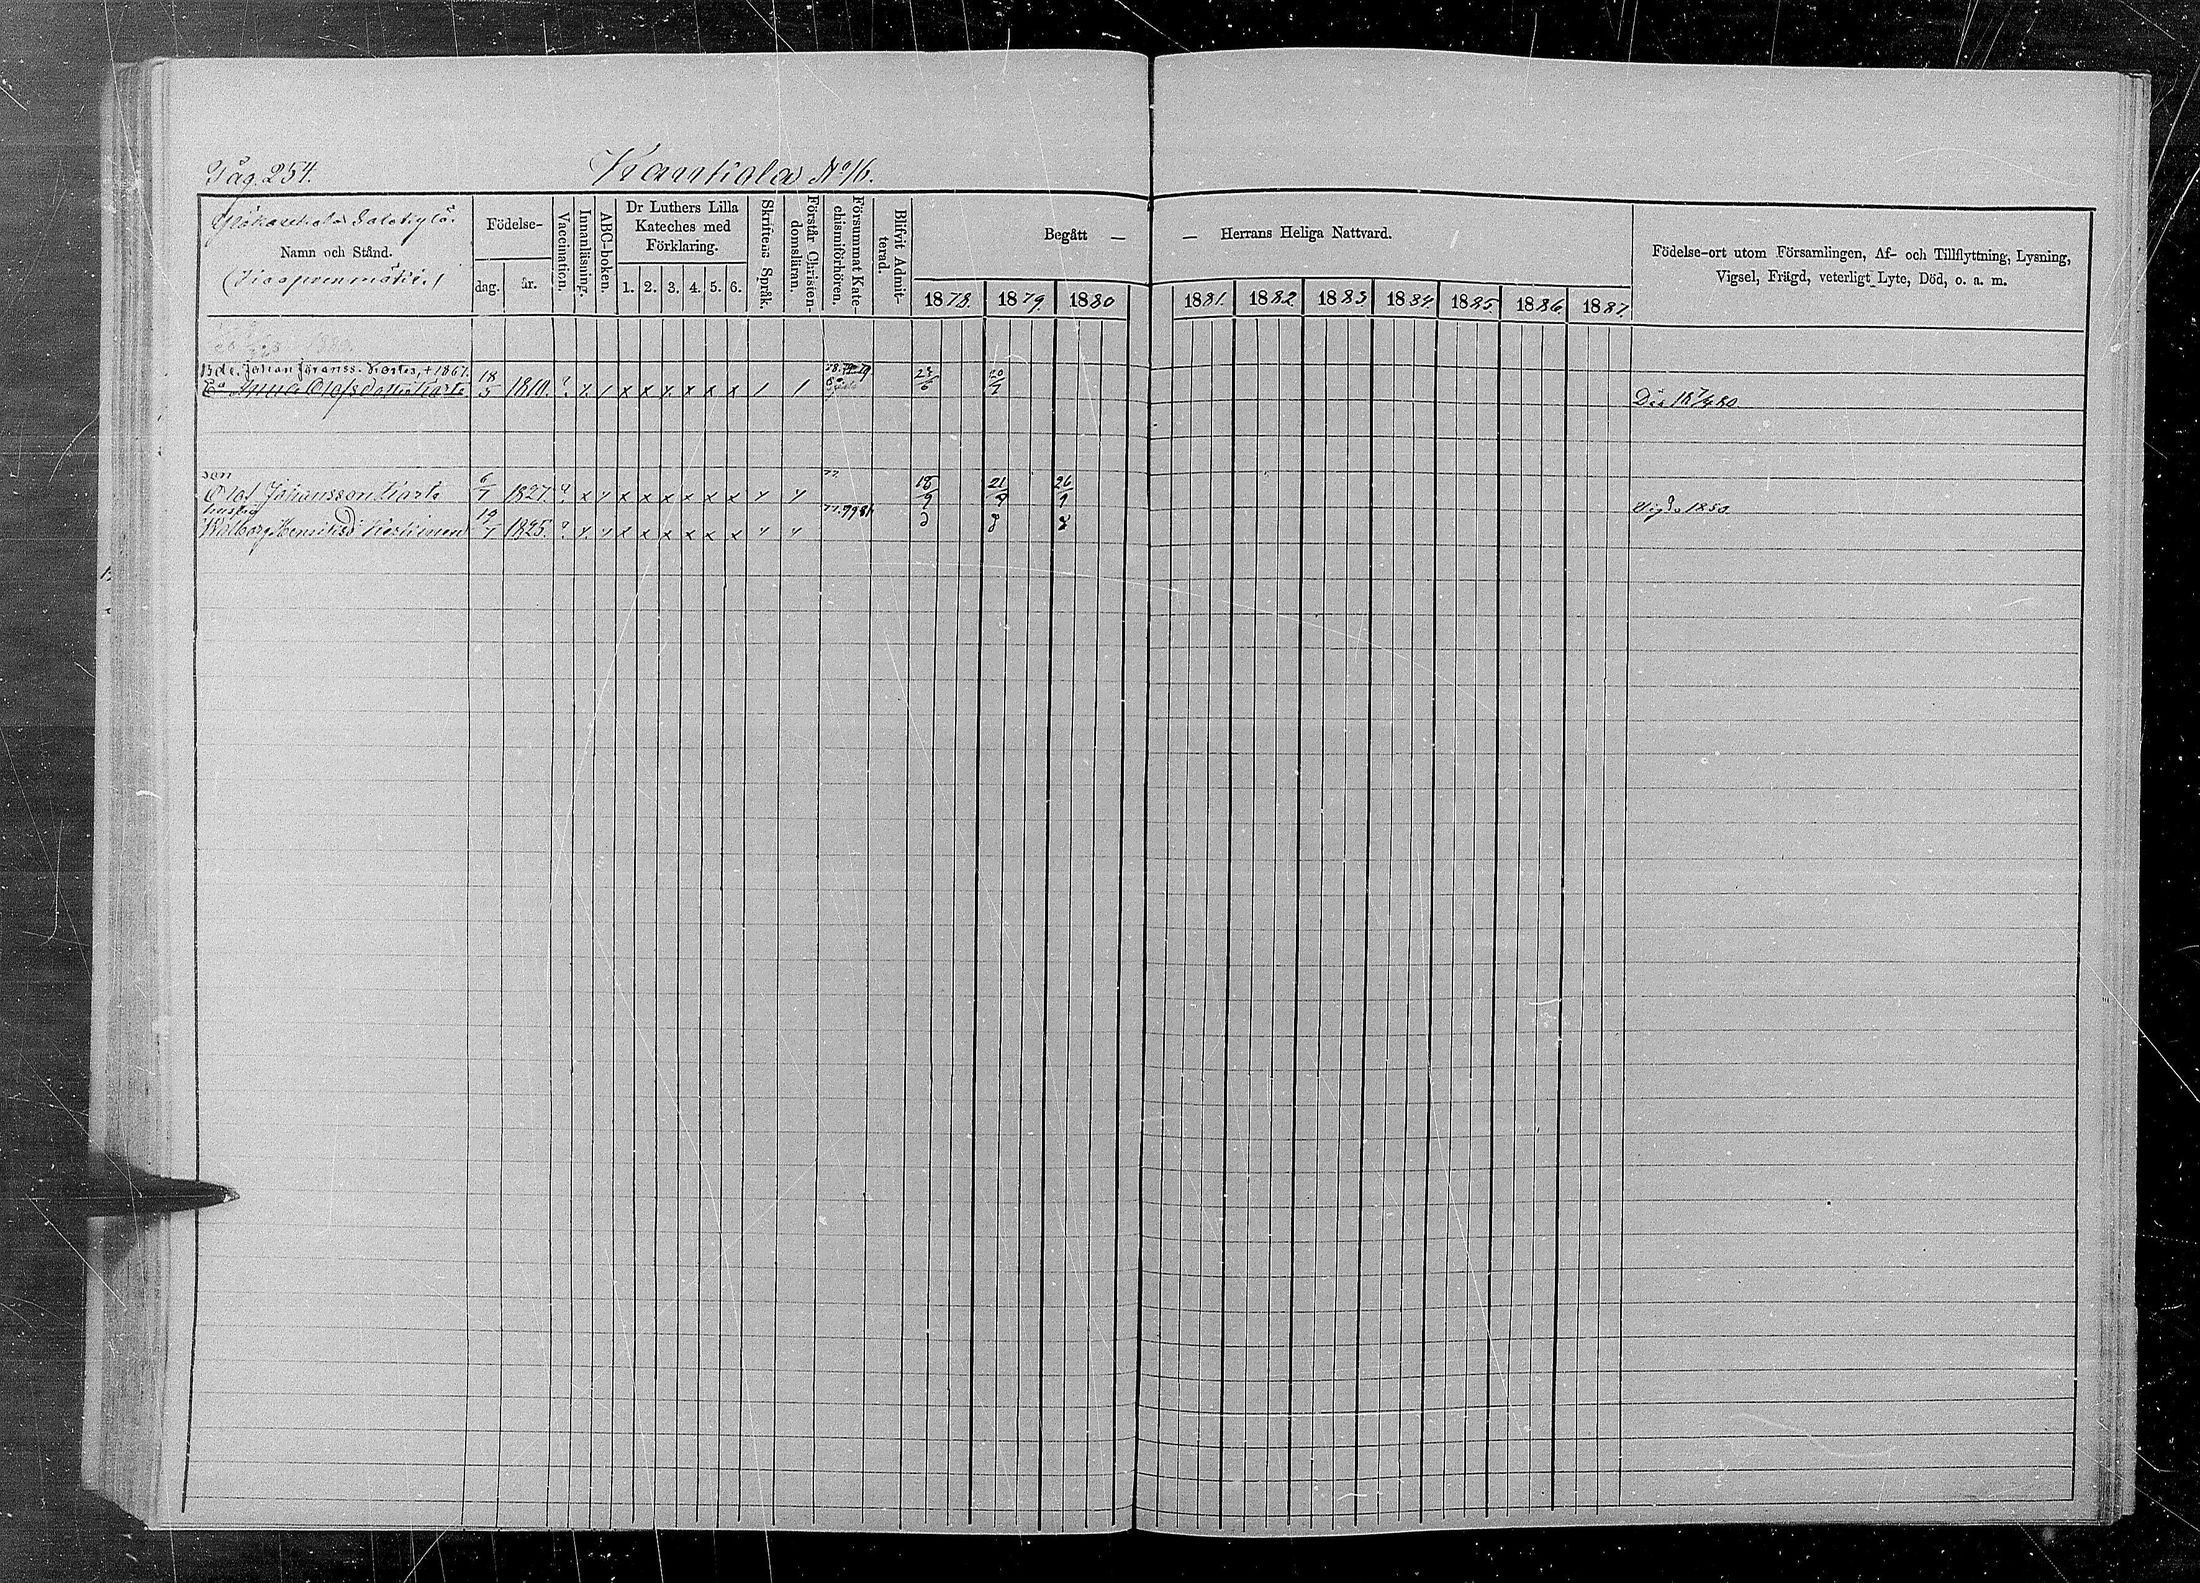 Pag. 254.
Kamkala No 16.
Namn och Stånd.
Födelse-
dag. år.
Vaccination.
Innanläsning.
ABC-boken.
Dr Luthers Lilla
Kateches med
Förklaring.
1. 2. 3. 4. 5. 6.
Skriftens Språk.
Förstår Christen-
domsläran.
Försummat Kate-
chismiförhören.
Blifvit Admit-
terad.
Begått — — Herrans Heliga Nattvard.
1878. 1879. 1880 1881. 1882 1883. 1884. 1885. 1886. 1887.
Födelse-ort utom Församlingen, Af- och Tillflyttning, Lysning,
Vigsel, Frägd, veterligt Lyte, Död, o. a. m.
Bde. Johan Göranss. + 1867.
Anna Olofsdotter 18/5 1810. ? x 1 x x x x x x 1 1
Död 18
son
Olof Johansson 6/7 1827. ? x x x x x x x x 18/9 21/9 26/9
77.
hustru
Walborg Henriksd 1825. ? x x x x x x x x
Vigd. 1850.